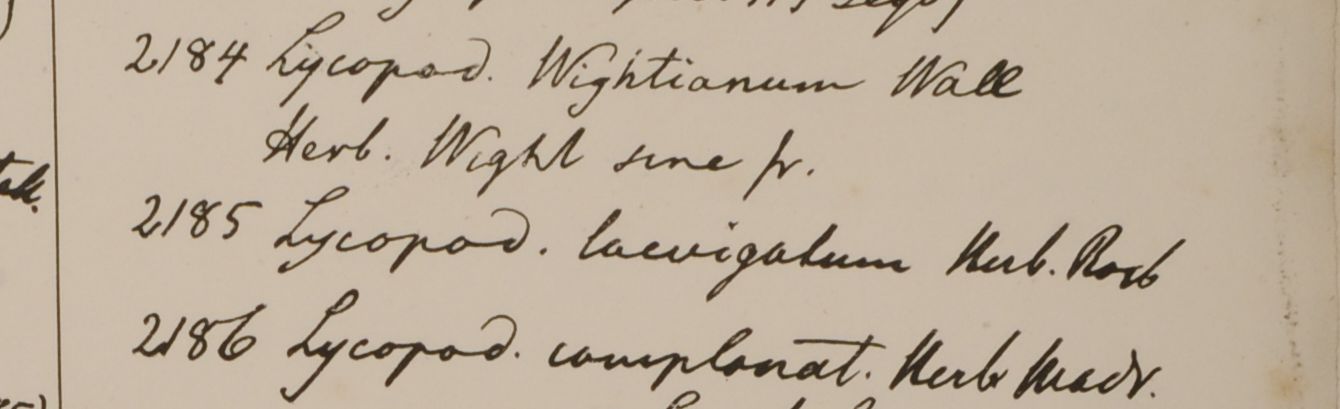 2184 Lycopod. Wightianum Wall
Herb. Wight sine fr.
2185 Lycopod. laevigatum Herb. Roxb
2186 Lycopod. complanat. Herb Madr.